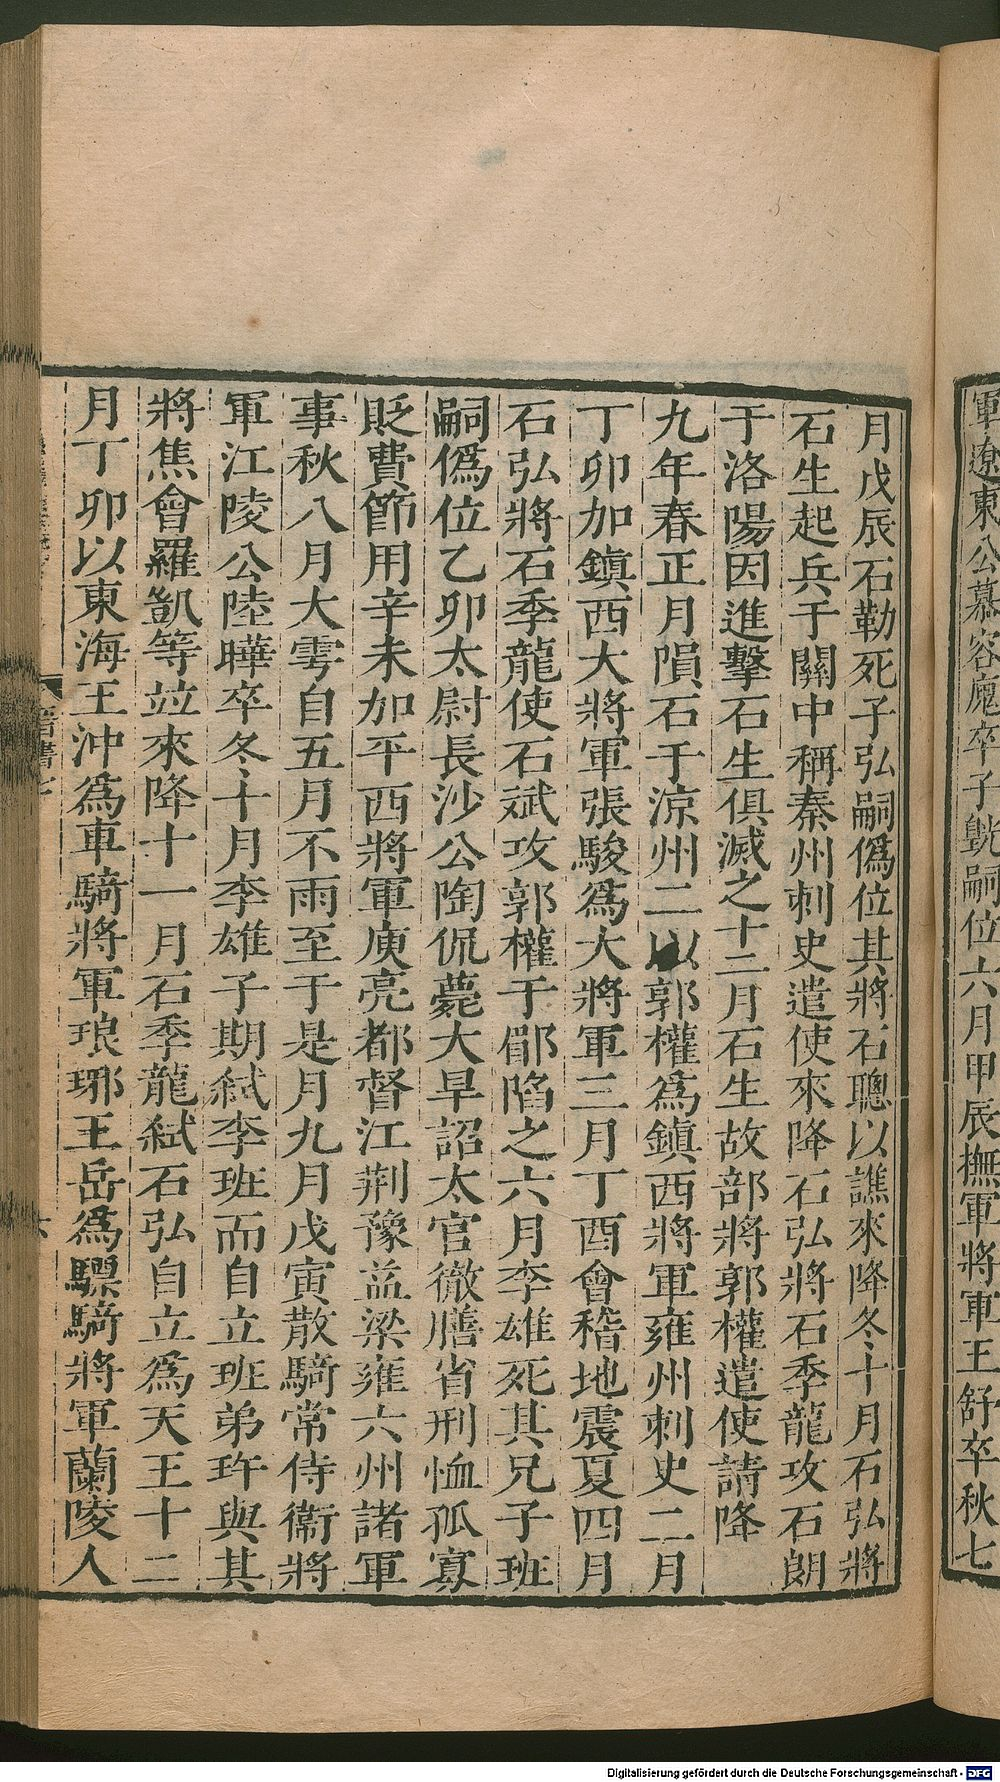 軍遼東公慕容廆卒子皝嗣位六月甲辰撫軍將軍王舒卒秋七
月戊辰石勒死子弘嗣僞位其將石聰以譙來降冬十月石弘將
石生起兵于關中稱秦州刺史遣使來降石弘將石季龍攻石朗
于洛陽因進擊石生俱滅之十二月石生故部將郭權遣使請降
九年春正月隕石于涼州二以郭權爲鎮西將軍雍州刺史二月
丁卯加鎮西大將軍張駿爲大將軍三月丁酉會稽地震夏四月
石弘將石季龍使石斌攻郭權于郿陷之六月李雄死其兄子班
嗣僞位乙卯太尉長沙公陶侃薨大旱詔太官徹膳省刑恤孤寡
貶費節用辛未加平西將軍庾亮都督江荆豫益梁雍六州諸軍
事秋八月大雩自五月不雨至于是月九月戊寅散騎常侍衞將
軍江陵公陸曄卒冬十月李雄子期弑李班而自立班弟玝與其
將焦會羅凱等竝來降十一月石季龍弑石弘自立爲天王十二
月丁卯以東海王沖爲車騎將軍琅琊王岳爲驃騎將軍蘭陵人
晉書七
六
Digitalisierung gefördert durch die Deutsche Forschungsgemeinschaft - DFG